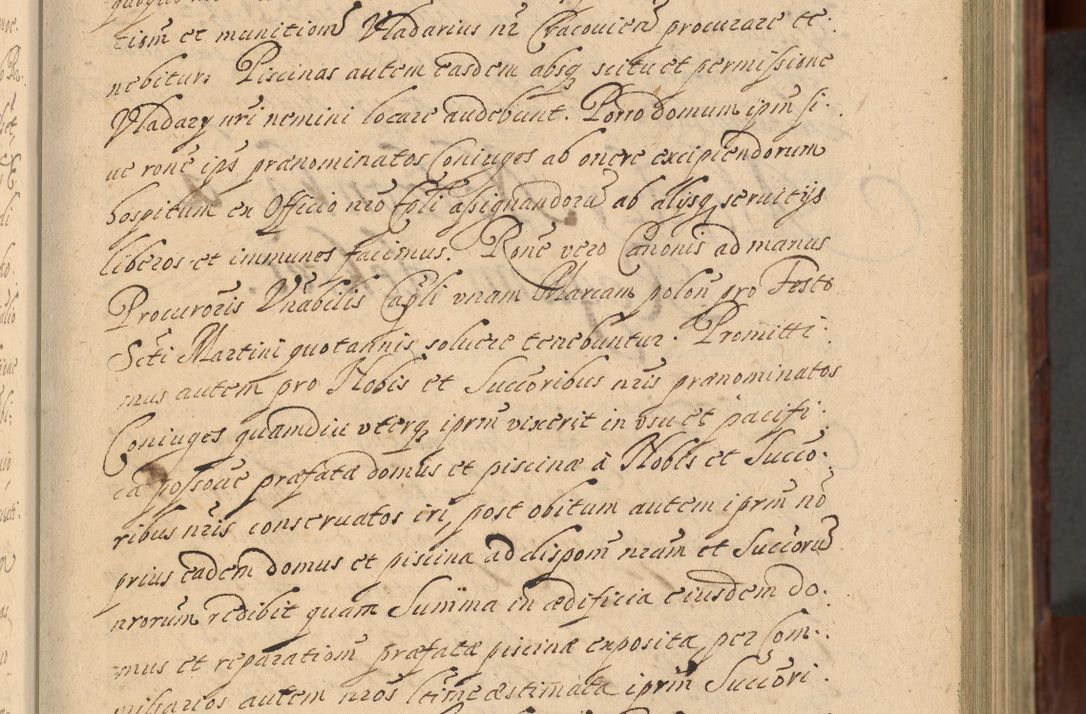 tiom̃ et munitiom̃ Vladarius nr̃ Cracovien̄ procurare te-
nebitur. Piscinas autem easdem absq scitu et permissione
Vladarÿ nr̃i nemini locare audebunt. Porro domum ipm̃ si-
ue rone ips prænominatos Coniuges ab onere excipiendorum
hospitum ex Officio nr̃o Epli assignandorũ ab alÿsq seruitÿs
liberos et immunes facimus. Rone vero Canonis ad manus
Procuror̃is Vnabilis Capli vnam Marcam polon̄ pro Festo
Scti Martini quotannis soluere tenebuntur. Promitti-
mus autem pro Nobis et Succoribus nr̃is prænominatos
Coniuges quamdiu vterq iprm̃ vixerit in vsu et pacifi-
ca possoue præfatæ domus et piscinæ à Nobis et Succo-
ribus nr̃is conseruatos iri, post obitum autem iprm̃ nõ
prius eadem domus et piscina ad dispom̃ nr̃am et Succorũ
nrorum redibit quam Summa in ædificia eiusdem do-
mus et reparatiom̃ præfatæ piscinæ exposita per Com-
missarios autem nr̃os ltime æstimata iprm̃ Succori-